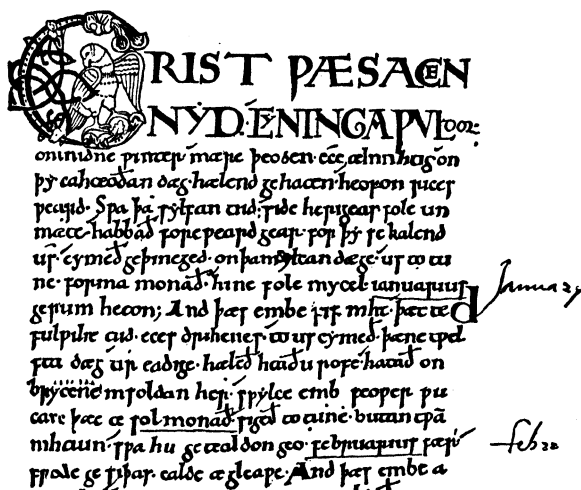 CRIST ǷÆS ACEN
NYD. CYNINGA ǷULdor.
on midne ƿinter. mære þeoden. ece. ælmihtig. on
þy eahteoðan dæg. hælend gehaten. heofon rices
ƿeard. Sƿa þa sylfan tiid. side herigeas folc un
mæte. habbað foreƿeard gear. for þy se kalend
us. cymeð geþincged. on þam ylcan dæge. us to tu
ne. forma monað. hine folc mycel. ianuarius
gerum heton; And þæs embe fif niht. þætte
fulƿiht tiid. eces drihtnes. to us cymeð. þæne tƿel
fta dæg tir eadige. hæleð heaðu rofe. hatað on
brytene in foldan her. sƿylce emb feoƿer ƿu
can þætte sol monað. sigeð to tune. butan tƿam
nihtum. sƿa hit getealdon geo. februarius fær.
frode gesiþas. ealde ægleaƿe. And þæs embe a
January
feb